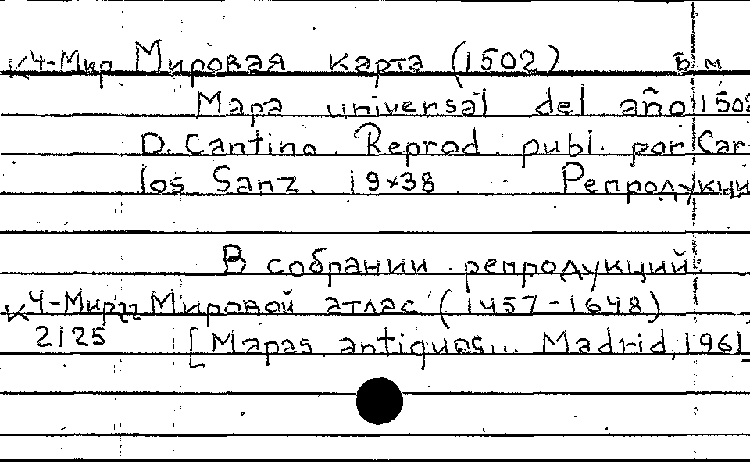 К4-Мир Мировая карта (1502) Б.м.
Mapa universal del año 1502
D. Cantino. Reprod. publ. por Car-
los Sanz. 19×38 Репродукци
В собрании репродукций:
К4-Мир Мировой атлас (1457-1648)
2125 [Mapas antiguos... Madrid, 1961]